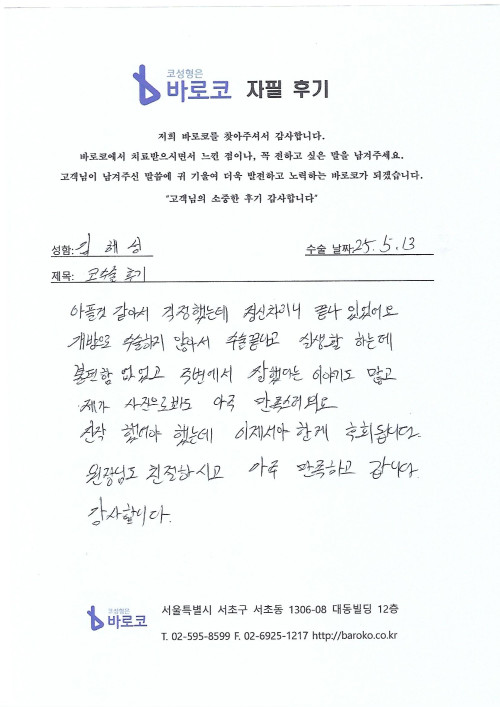 코성형은
바로코 자필 후기
저희 바로코를 찾아주셔서 감사합니다.
바로코에서 치료받으시면서 느낀 점이나, 꼭 전하고 싶은 말을 남겨주세요.
고객님이 남겨주신 말씀에 귀 기울여 더욱 발전하고 노력하는 바로코가 되겠습니다.
"고객님의 소중한 후기 감사합니다"
성함: 김해성 수술 날짜: 25. 5. 13
제목: 코수술 후기
아플것 같아서 걱정했는데 정신차리니 끝나 있었어요
개방으로 수술하지 않아서 수술끝나고 실생활 하는데
불편함 없었고 주변에서 잘했다는 이야기도 많고
제가 사진으로봐도 아주 만족스러워요
진작 했어야 했는데 이제서야 한게 후회됩니다.
원장님도 친절하시고 아주 만족하고 갑니다.
감사합니다.
코성형은
바로코
서울특별시 서초구 서초동 1306-08 대동빌딩 12층
T. 02-595-8599 F. 02-6925-1217 http://baroko.co.kr